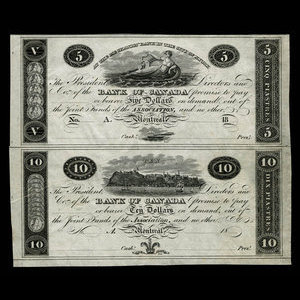 5 5
V 5
The President, Directors and
Co. of the BANK OF CANADA promise to pay
or bearer Five Dollars on demand, out of
the Joint Funds of the ASSOCIATION, and no other
No. A. Montreal 18
Cash. Pres.
V 5
CINQ PIASTRES
10 10
10 10
The President, Directors and
Co. of the BANK OF CANADA promise to pay
or bearer Ten Dollars on demand, out of
the Joint Funds of the Association, and no other
A. Montreal, 18
Cash. Pres.
10 10
DIX PIASTRES